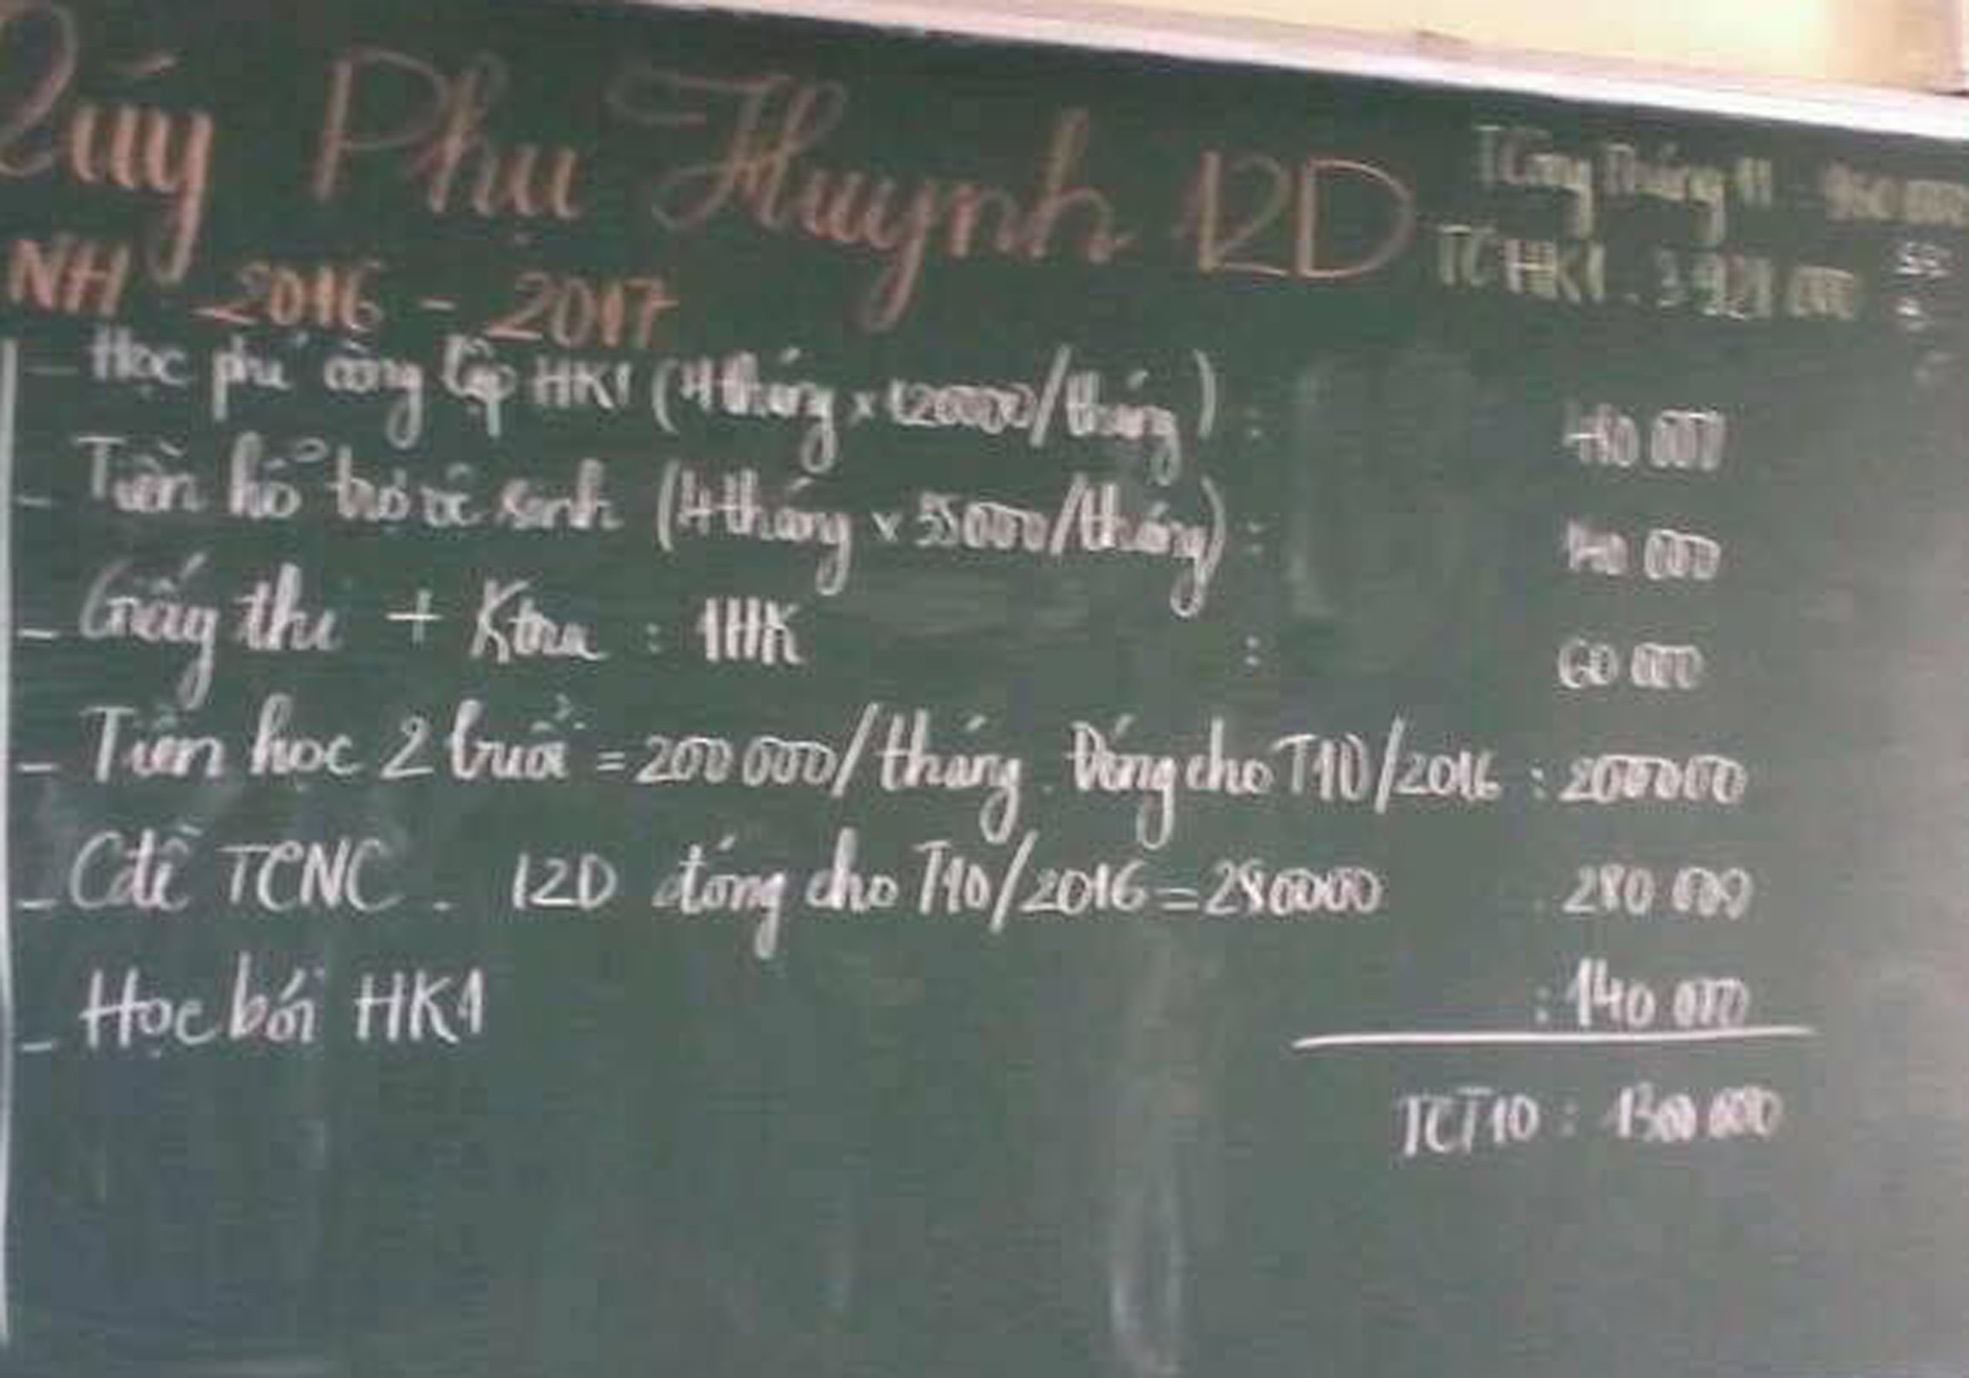 Qúy Phụ Huynh 12D
NH 2016 - 2017
TCộng Tháng 11
TC HK1 - 3 921 000
- Học phí công lập HK1 (4 tháng x 120000/tháng) : 000
- Tiền hổ trợ vê sinh (4 tháng x 35000/tháng) : 140 000
- Giấy thi + Ktra : 1HK : 60 000
- Tiền học 2 buổi = 200 000/tháng. Đóng cho T10/2016 : 200000
- Cđề TCNC. 12D đóng cho T10/2016 = 280000 : 280 000
- Học bơi HK1 : 140 000
TCT10 : 1300 000